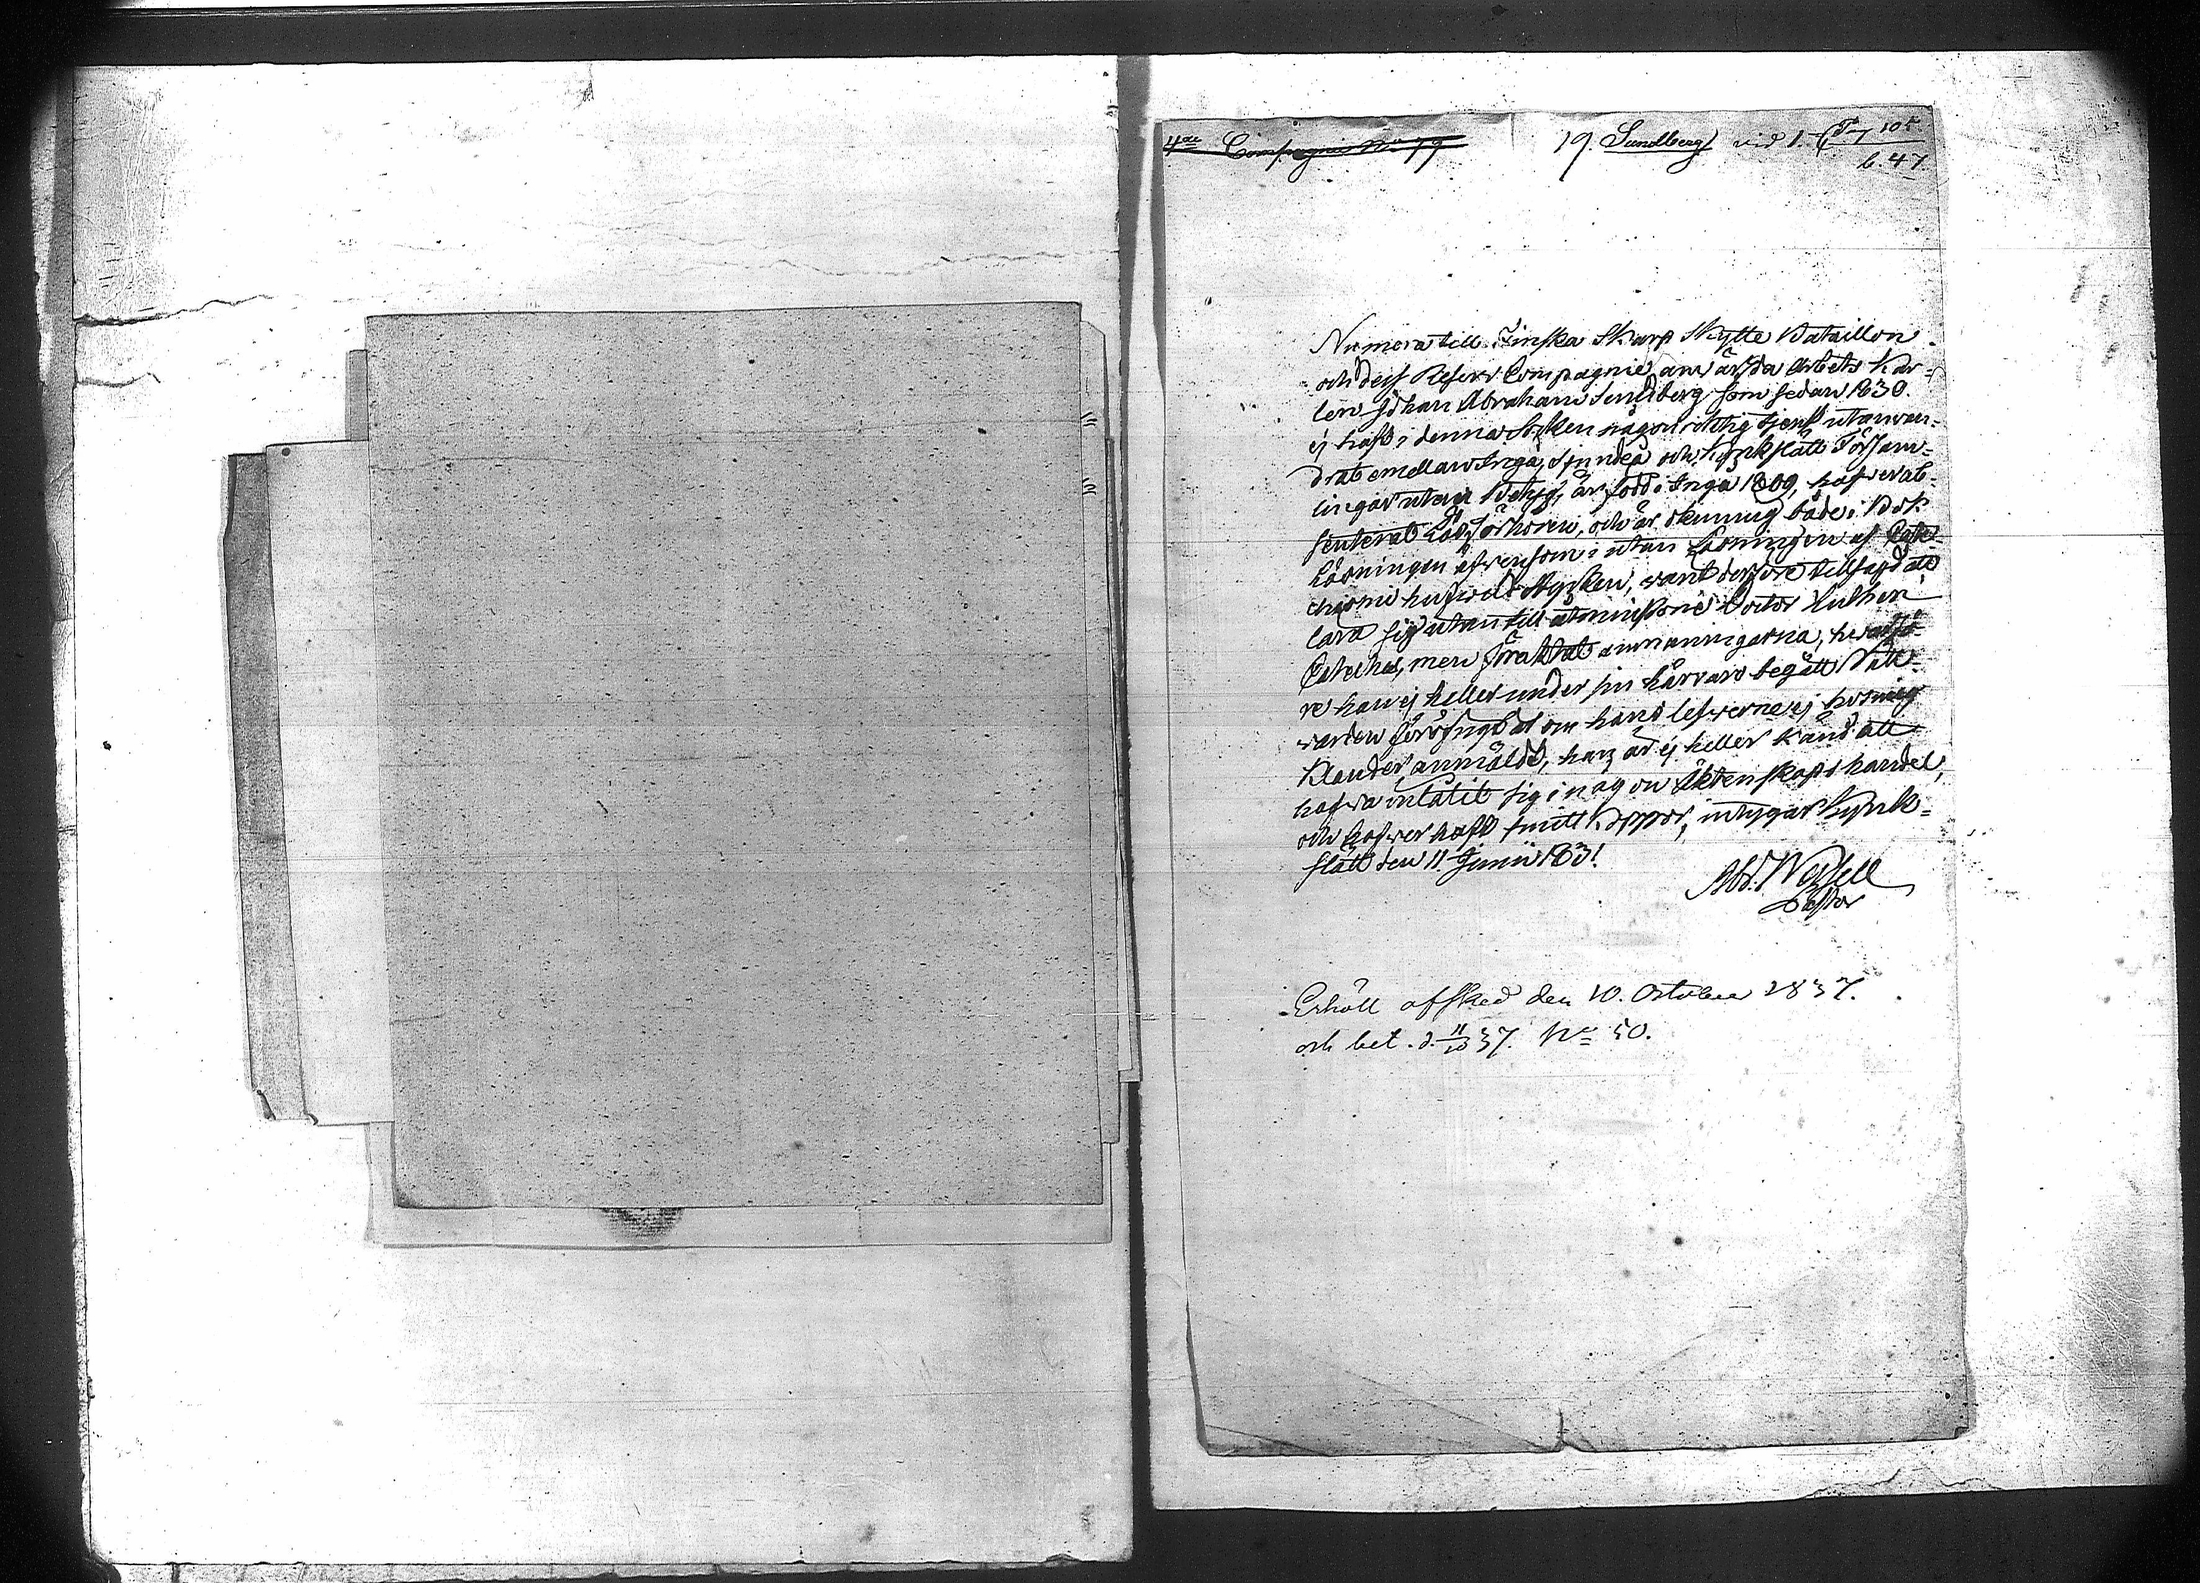 4de Compagnie No 79
19 Sundberg vid 1.
105
b. 47
Numera till Finska Skarp Skytte Bataillon
och dess Reserv Compagnie anvärfda Arbets Kar-
len Johan Abraham Sundberg som sedan 1830.
ej haft i denna Socken någon rigtig tjenst utan van-
drat emellan Ingå, Sjundeå och Kyrkslätt Försam-
lingar utan Betyg, är född i Ingå 1809, hafver ab-
senterat Läsförhören, och är okunnig både i Bok
Läsningen äfvensom i utan Läsningen af Cate-
chismi hufvud Stycken, vant derföre tillsagd att
lära sig utan till åtminstone Doctor Luthers
Cateches, men föraktat anmaningarna, hvarfö-
re han ej heller under sin härvaro begått Natt-
varden föröfrigt är om hans lefverne ej
Klander anmäldt, han är ej heller känd att
hafva inlåtit sig i någon Äktenskaps handel,
och hafver haft smitt koppor, intygar Kyrk-
slätt den 11 Junii 1831.
Abr. 
Pastor
Erhöll afsked den 10. October 1837.
och bet. d. 11/10 37. No 50.